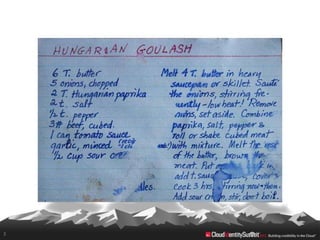 HUNGARIAN GOULASH
6 T. butter
5 onions, chopped
2 T. Hungarian paprika
2 t. salt
½ t. pepper
3# beef, cubed.
1 can tomato sauce
garlic, minced
½ cup sour
Melt 4 T. butter in heavy
saucepan or skillet. Sauté
the onions, stirring fre-
quently - low heat! Remove
, set aside. Combine
paprika, salt, pepper &
roll or shake cubed meat
with mixture. Melt the rest
of the batter, brown the
meat. Put
add t. sauce, cover &
cook 3 hrs. stirring now & then.
Add sour , stir, don't boil.
3
Building credibility in the Cloud